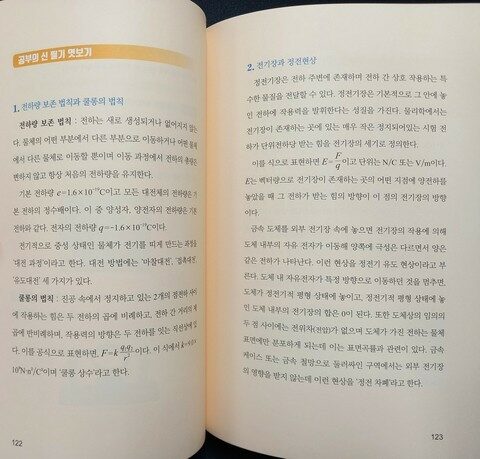 공부의 신 필기 엿보기
1. 전하량 보존 법칙과 쿨롱의 법칙
전하량 보존 법칙 : 전하는 새로 생성되거나 없어지지 않는
다. 물체의 어떤 부분에서 다른 부분으로 이동하거나 어떤 물체
에서 다른 물체로 이동할 뿐이며 이동 과정에서 전하의 총량은
변하지 않고 항상 처음의 전하량을 유지한다.
기본 전하량 e=1.6×10⁻¹⁹C이고 모든 대전체의 전하량은 기
본 전하의 정수배이다. 이 중 양성자, 양전자의 전하량은 기본
전하와 같다. 전자의 전하량은 q=-1.6×10⁻¹⁹C이다.
전기적으로 중성 상태인 물체가 전기를 띠게 만드는 과정을
'대전 과정'이라고 한다. 대전 방법에는 '마찰대전', '접촉대전',
'유도대전' 세 가지가 있다.
쿨롱의 법칙 : 진공 속에서 정지하고 있는 2개의 점전하 사이
에 작용하는 힘은 두 전하의 곱에 비례하고, 전하 간 거리의 제
곱에 반비례하며, 작용력의 방향은 두 전하를 잇는 직선상에 있
다. 이를 공식으로 표현하면, F=k q₁q₂/r² 이다. 이 식에서 k=9.0×
10⁹N·m²/C²이며 '쿨롱 상수'라고 한다.
122
2. 전기장과 정전현상
정전기장은 전하 주변에 존재하며 전하 간 상호 작용하는 특
수한 물질을 전달할 수 있다. 정전기장은 기본적으로 그 안에 놓
인 전하에 작용력을 발휘한다는 성질을 가진다. 물리학에서는
전기장이 존재하는 곳에 있는 매우 작은 정지되어있는 시험 전하
가 단위전하당 받는 힘을 전기장의 세기로 정의한다.
이를 식으로 표현하면 E=F/q 이고 단위는 N/C 또는 V/m이다.
E는 벡터량으로 전기장이 존재하는 곳의 어떤 지점에 양전하를
놓았을 때 그 전하가 받는 힘의 방향이 이 점의 전기장의 방향
이다.
금속 도체를 외부 전기장 속에 놓으면 전기장의 작용에 의해
도체 내부의 자유 전자가 이동해 양쪽에 극성은 다르면서 양은
같은 전하가 나타난다. 이런 현상을 정전기 유도 현상이라고 부
른다. 도체 내 자유전자가 특정 방향으로 이동하던 것을 멈추면,
도체가 정전기적 평형 상태에 놓이고, 정전기적 평형 상태에 놓
인 도체 내부의 전기장의 합은 0이 된다. 또한 도체상의 임의의
두 점 사이에는 전위차(전압)가 없으며 도체가 가진 전하는 물체
표면에만 분포하게 되는데 이는 표면곡률과 관련이 있다. 금속
케이스 또는 금속 철망으로 둘러싸인 구역에서는 외부 전기장
의 영향을 받지 않는데 이런 현상을 '정전 차폐'라고 한다.
123